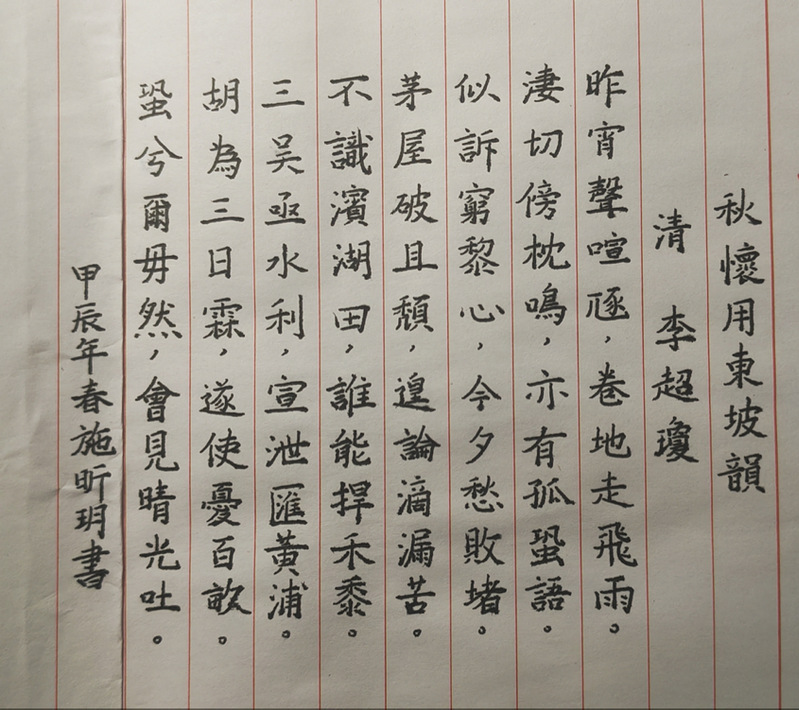 秋懷用東坡韻
清 李超瓊
昨宵聲喧豗,卷地走飛雨。
淒切傍枕鳴,亦有孤蛩語。
似訴窮黎心,今夕愁敗堵。
茅屋破且頹,遑論滴漏苦。
不識濱湖田,誰能捍禾黍。
三吴亟水利,宣泄匯黃浦。
胡為三日霖,遂使憂百畝。
蛩兮爾毋然,會見晴光吐。
甲辰年春施昕玥書